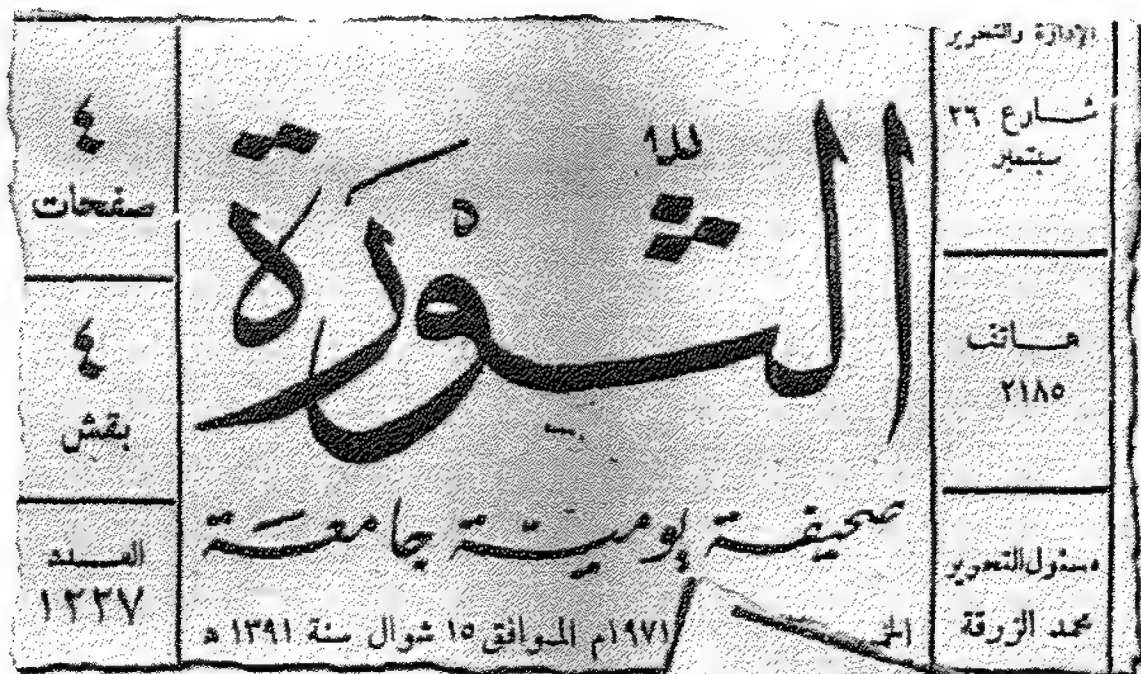 الإدارة والتحرير
شارع ٢٦
سبتمبر
هاتف
٢١٨٥
مسئول التحرير
محمد الزرقة
الثورة
صحيفة يومية جامعة
١٩٧١م الموافق ١٥ شوال سنة ١٣٩١ هـ
٤
صفحات
٤
بقش
العدد
١٢٢٧